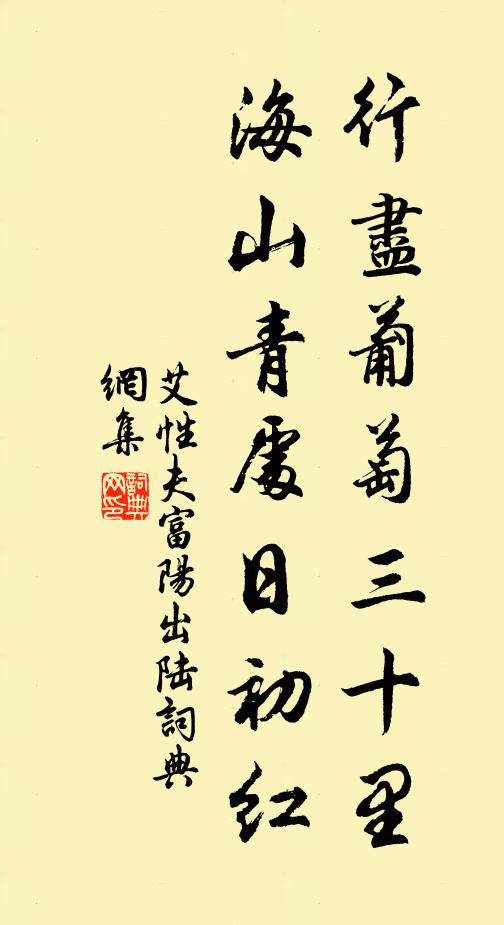 行盡葡萄三十里
海山青處日初红
艾性夫富陽出陆詞典
網集
詞典
网印